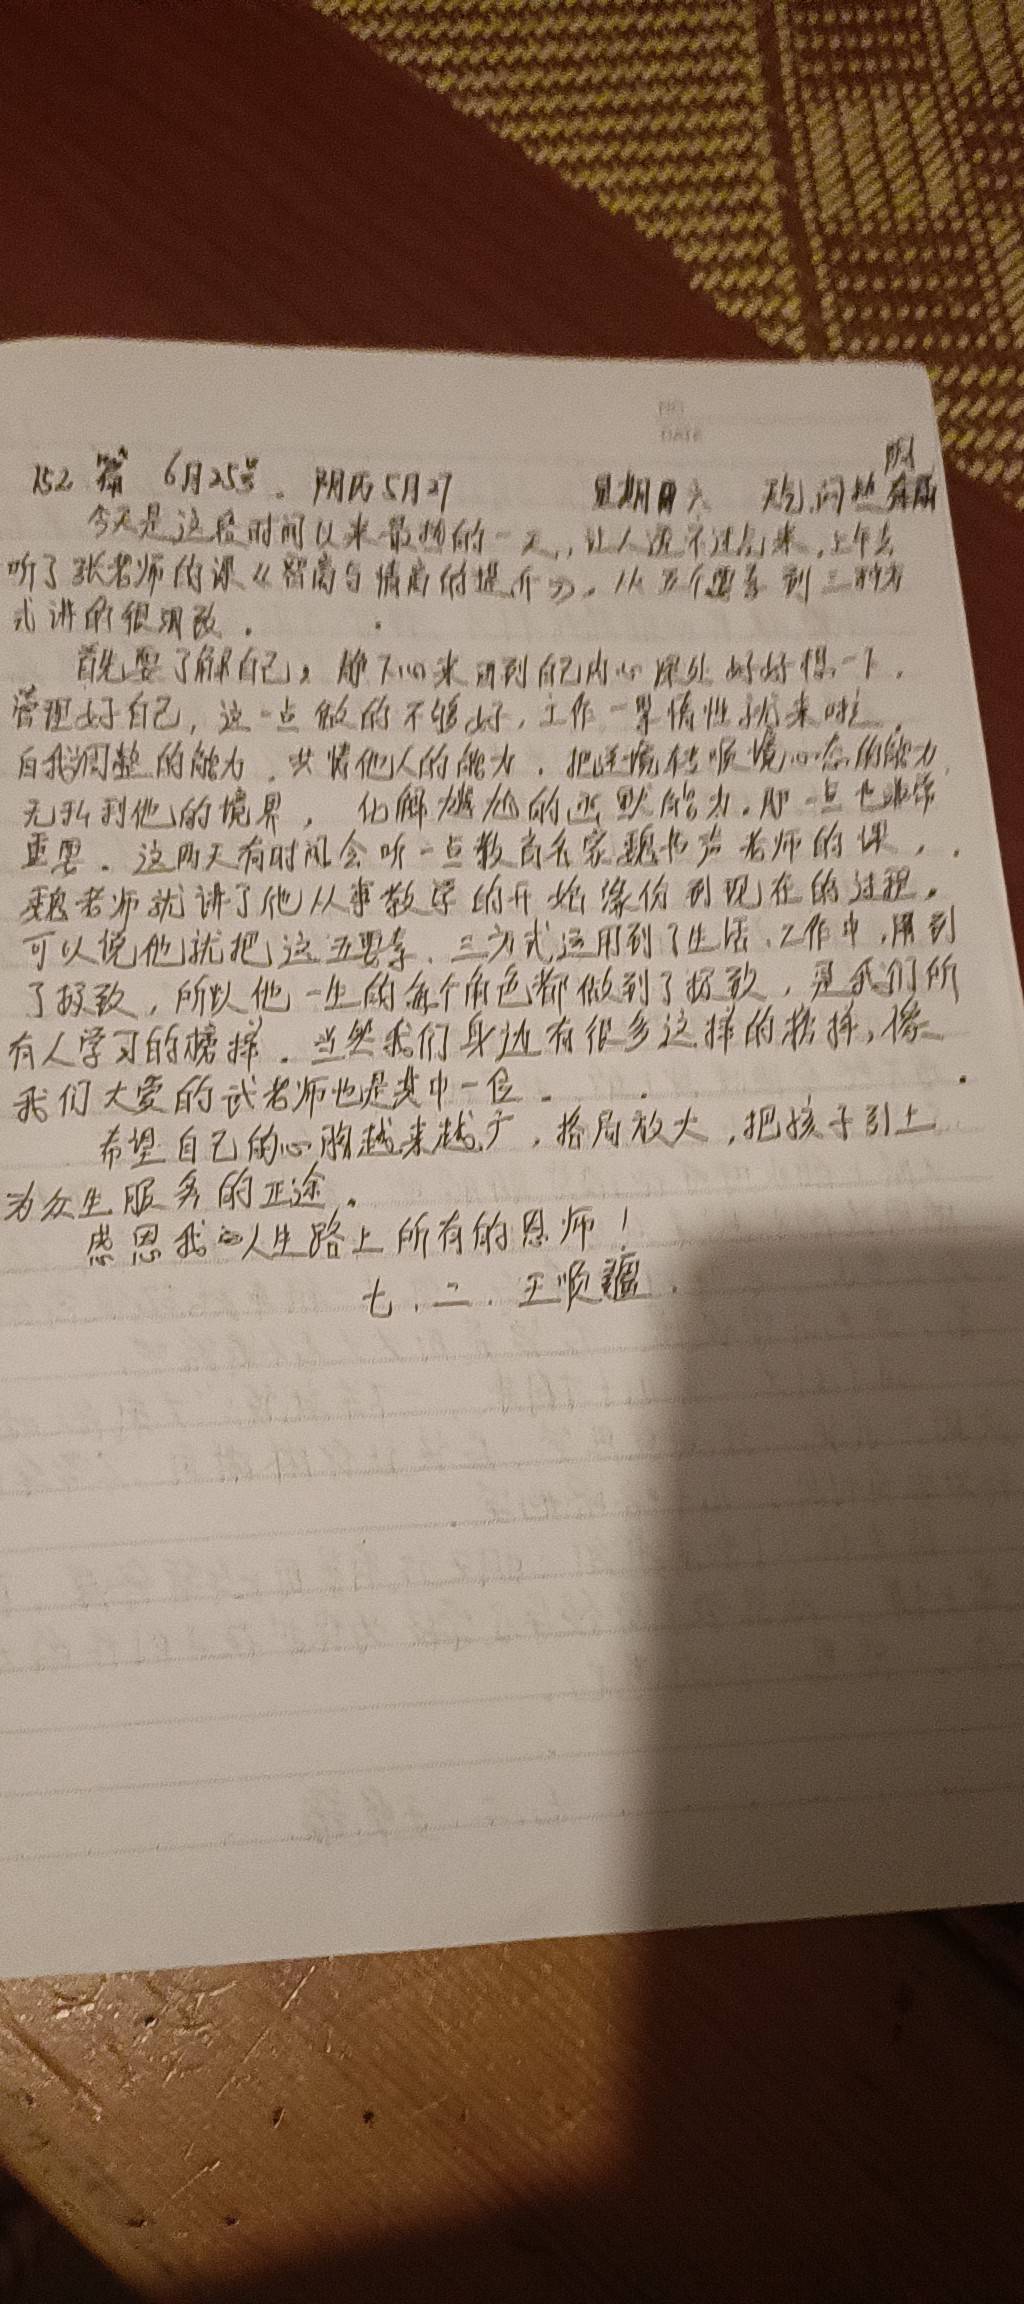 152 篇 6月25号. 阴历5月27 星期六 天气.闷热
今天是这段时间以来最热的一天,,让人透不过气来,上午去
听了张老师的课《智商与情商的提升》,从五个要素到三种方
式讲的很明改.
首先要了解自己,静下心来回到自己内心深处好好想一下.
管理好自己,这一点做的不够好,工作一累惰性就来啦,
自我调整的能力.共情他人的能力.把逆境转顺境心态的能力,
无私利他的境界, 化解尴尬的幽默能力.那一点也非常
重要.这两天有时间会听一点教育名家魏书声老师的课,.
魏老师就讲了他从事教学的开始缘份到现在的过程.
可以说他就把这五要素、三方式运用到了生活、工作中,用到
了极致,所以他一生的每个角色都做到了极致,是我们所
有人学习的榜样.当然我们身边有很多这样的榜样,像
我们大爱的武老师也是其中一位.
希望自己的心胸越来越广,格局放大,把孩子引上
为众生服务的正途.
感恩我的人生路上所有的恩师!
七.二.王顺